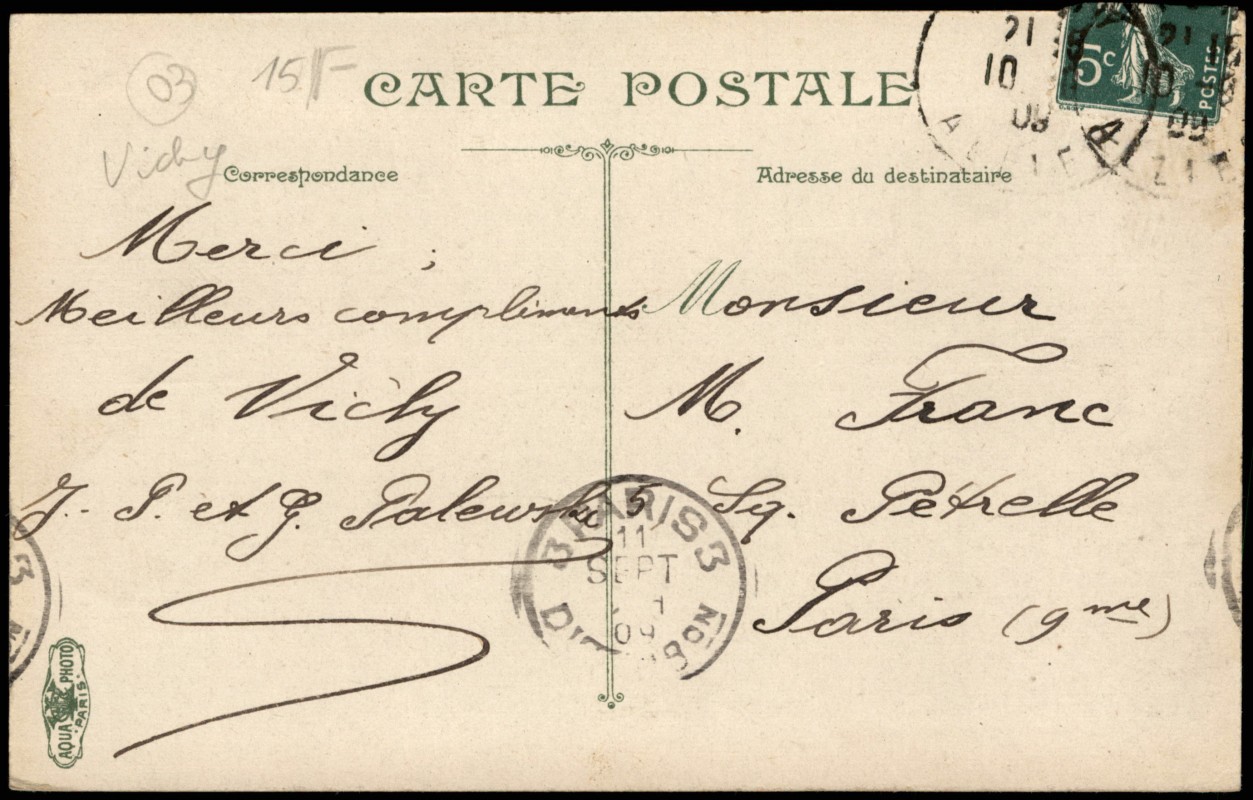 03
15F
Vichy
CARTE POSTALE
Correspondance
Adresse du destinataire
5c
POSTES
21
10
09
21
10
09
Merci ;
Meilleurs compliments
de Vichy
J. P. et G. Palewski
Monsieur
M. Franc
5 Sq. Pétrelle
Paris (9me)
3 PARIS 3
11
SEPT
09
AQUA PHOTO
PARIS